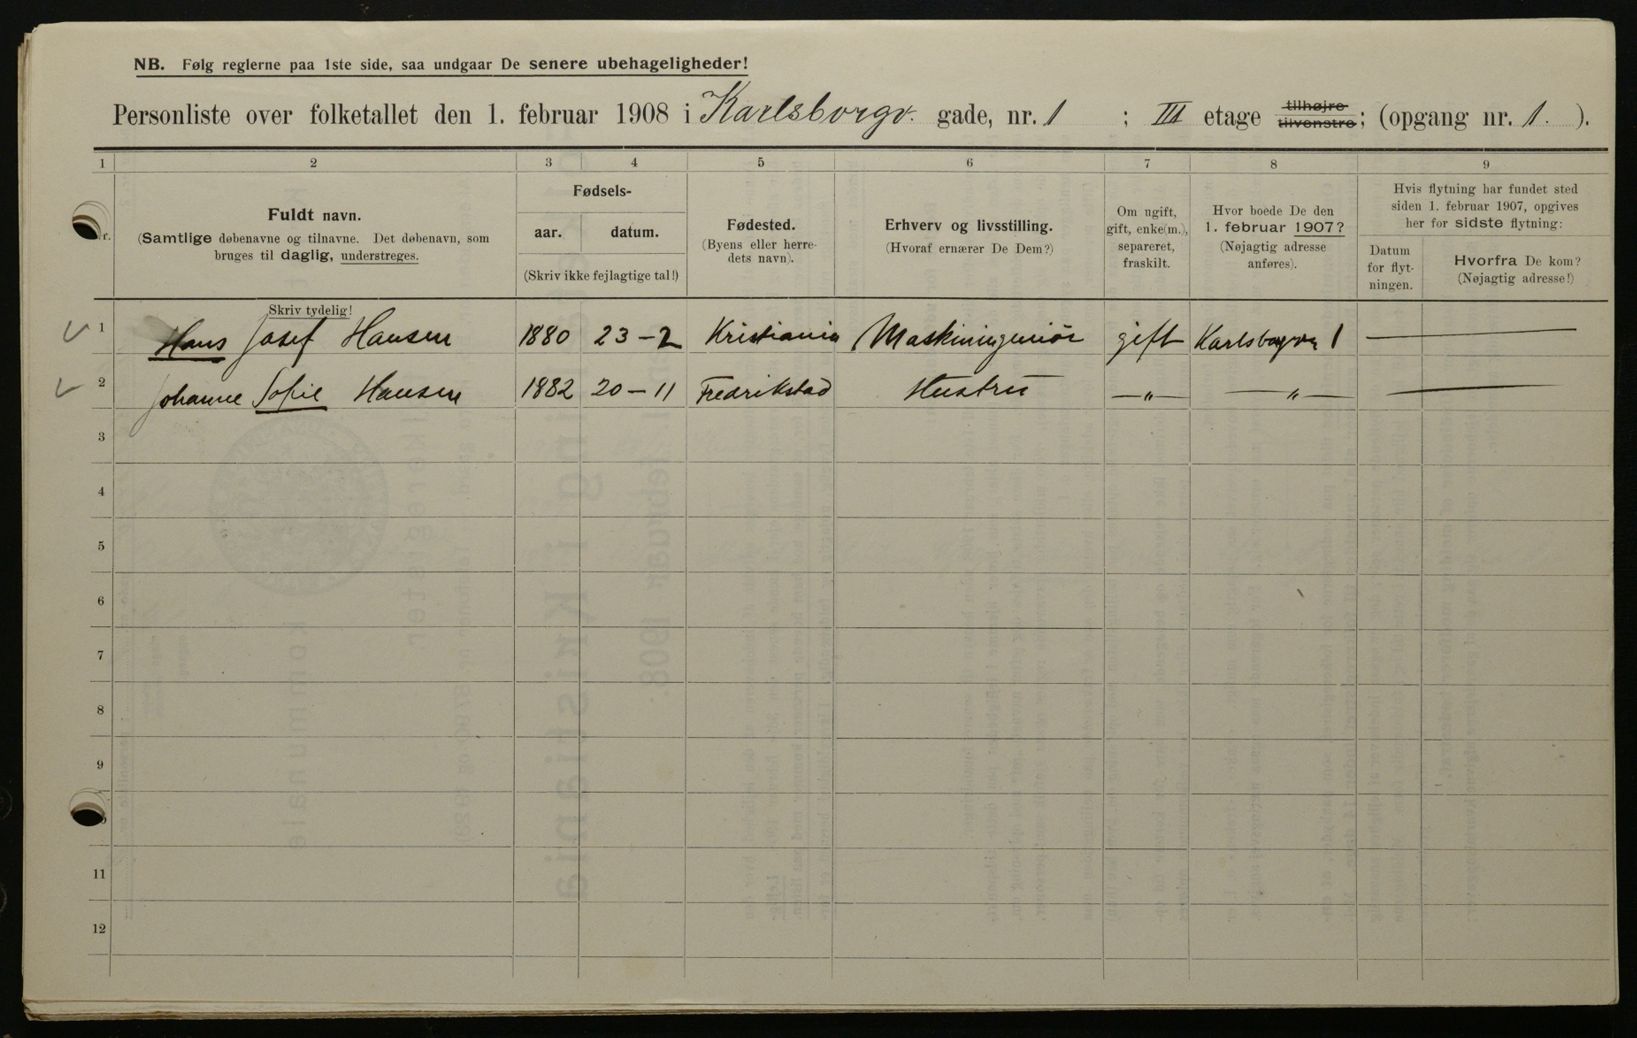 NB. Følg reglerne paa 1ste side, saa undgaar De senere ubehageligheder!
Personliste over folketallet den 1. februar 1908 i Karlsborgv. gade, nr. 1 ; III etage tilhøjre tilvenstre; (opgang nr. 1. ).
1 2 3 4 5 6 7 8 9
r. Fuldt navn. (Samtlige døbenavne og tilnavne. Det døbenavn, som bruges til daglig, understreges.
Skriv tydelig!
Fødsels-
aar. datum.
(Skriv ikke fejlagtige tal!)
Fødested.
(Byens eller herredets navn).
Erhverv og livsstilling.
(Hvoraf ernærer De Dem?)
Om ugift, gift, enke(m.), separeret, fraskilt.
Hvor boede De den 1. februar 1907?
(Nøjagtig adresse anføres).
Hvis flytning har fundet sted siden 1. februar 1907, opgives her for sidste flytning:
Datum for flytningen.
Hvorfra De kom?
(Nøjagtig adresse!)
1 Hans Josef Hansen 1880 23-2 Kristiania Maskiningeniør gift Karlsborgv. 1 —
2 Johanne Sofie Hansen 1882 20-11 Fredrikstad Hustru —"— —"— —
3
4
5
6
7
8
9
11
12